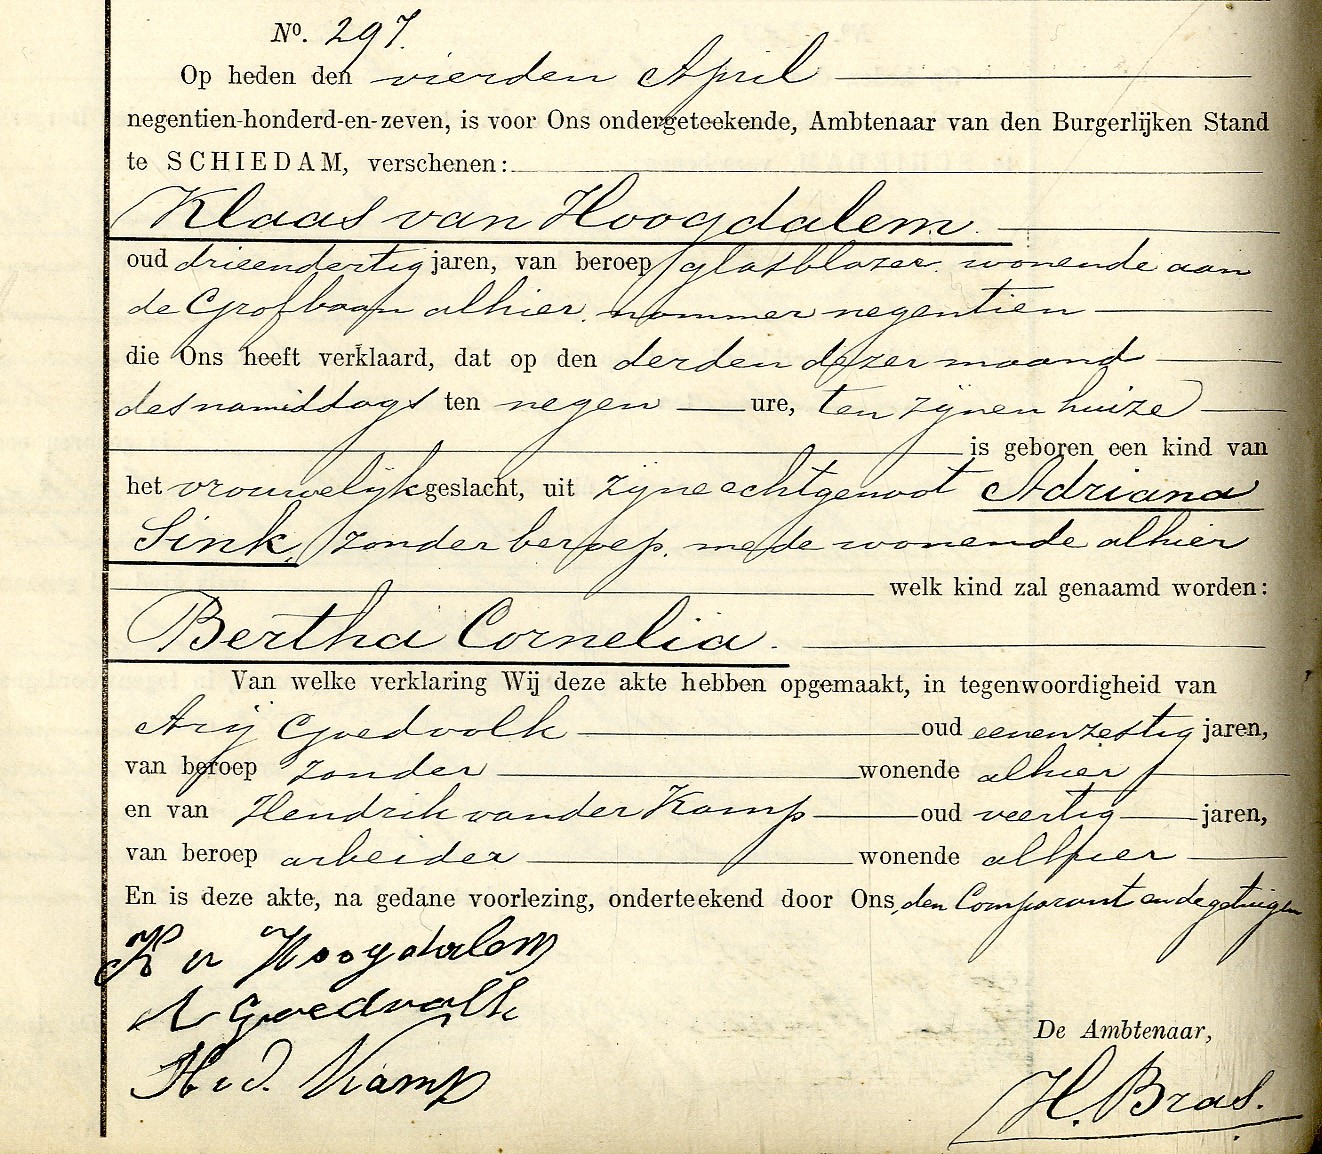 No. 297.
Op heden den vierden April
negentien-honderd-en-zeven, is voor Ons ondergeteekende, Ambtenaar van den Burgerlijken Stand
te SCHIEDAM, verschenen:
Klaas van Hoogdalem
oud drieendertig jaren, van beroep glasblazer. wonende aan
de Grofbaan alhier. nommer negentien
die Ons heeft verklaard, dat op den derden dezer maand
des namiddags ten negen ure, ten zijnen huize
is geboren een kind van
het vrouwelijk geslacht, uit zijne echtgenoot Adriana
Sink, zonder beroep. mede wonende alhier
welk kind zal genaamd worden:
Bertha Cornelia.
Van welke verklaring Wij deze akte hebben opgemaakt, in tegenwoordigheid van
Arij Goedvolk oud eenenzestig jaren,
van beroep zonder wonende alhier
en van Hendrik van der Kamp oud veertig jaren,
van beroep arbeider wonende alhier
En is deze akte, na gedane voorlezing, onderteekend door Ons, den Comparant en de getuigen
K v Hoogdalem
A Goedvolk
H v d. Kamp
De Ambtenaar,
H. Bras.